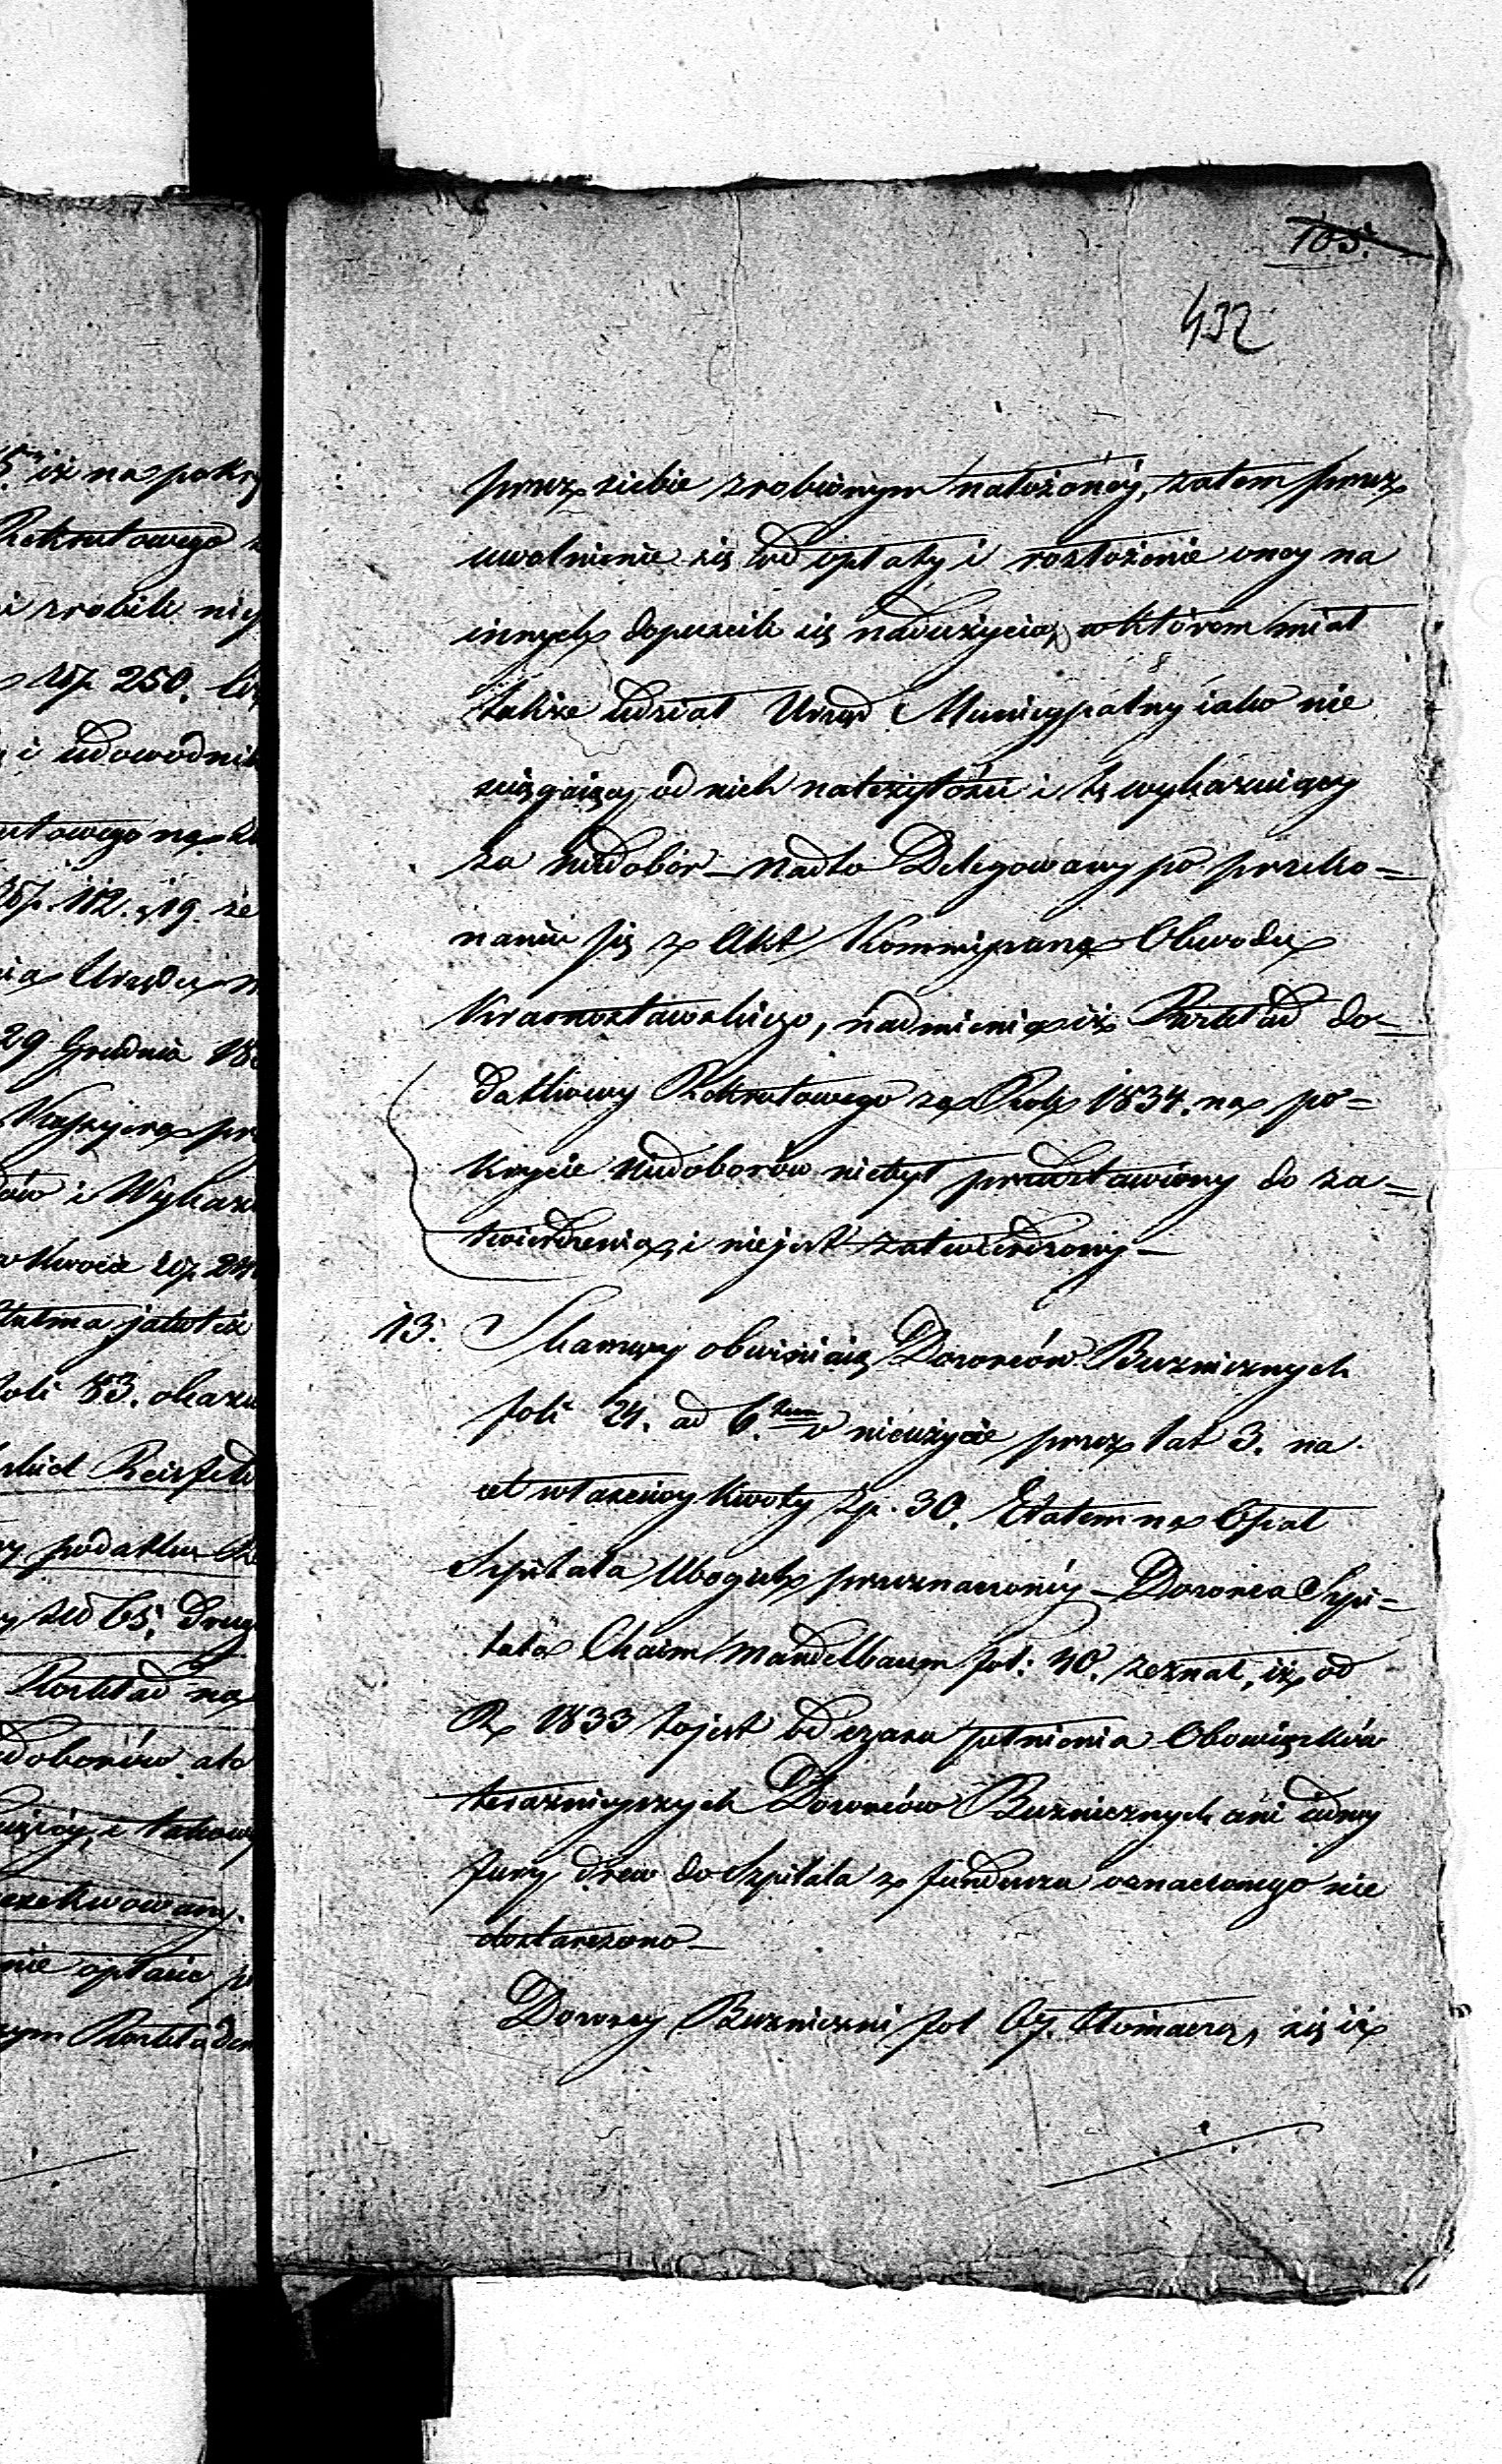 105.
432
przez siebie zrobionym nałożonéj, zatem przez
uwolnienie się od opłaty i rozłożenie onej na
innych dopuścili się nadużycia, w którem miał
także udział Urząd Municypalny iako nie
ściągaiący od nich należytości i tę wykazuiący
za niedobór – Nadto Delegowany po przeko=
naniu się z Akt Kommissarza Obwodu
Krasnostawskiego, nadmienia iż Rozkład do=
datkowy Rekrutowego za Rok 1834. na po=
krycie Niedoborów niebył przedstawiony do za=
twierdzenia, i niejest zatwierdzony –
13. Skarzący obwiniaią Dozorców Bużnicznych
foli 24. ad 6. o nieużycie przez lat 3. na
cel właściwy Kwoty Zp. 30. Etatem na Opał
Szpitala Ubogich przeznaczonéj – Dozorca Szpi=
tala Chaim Mandelbaum fol: 40. zeznał, iż od
R. 1833 tojest od czasu pełnienia Obowiązków
teraźnieyszych Dozorców Bużnicznych ani iedney
fury drew do Szpitala z funduszu oznaczonego nie
dostarczono –
Dozorcy Bużniczni fol 67. tłomaczą się iż
5. iż na pokry
Rekrutowego
i zrobili
250.
i udowodnil
112. 19. że
29 Grudnia 18
i Wykaz
w Kwocie Zł 24
foli 53. okazu
podatku
Rozkład na
doborów. ale
exekwowany.
nie opłacie
Rozkładem